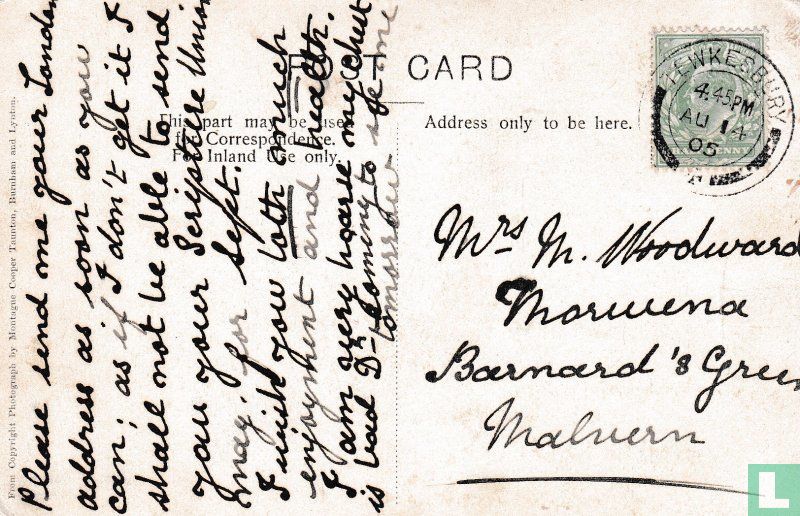 POST CARD
This part may be used
for Correspondence.
For Inland Use only.
Address only to be here.
TEWKESBURY
4.45PM
AU 14
05
HALFPENNY
Mrs M. Woodward
Morwena
Barnard's Green
Malvern
Please send me your London
address as soon as you
can; as if I don't get it I
shall not be able to send
you your Scripture Union
mag. for Sept.
I wish you both much
enjoyment and health.
I am very hoarse my chest
is bad Dr coming to see me
tomorrow
From Copyright Photograph by Montague Cooper Taunton, Burnham and Lynton.
L